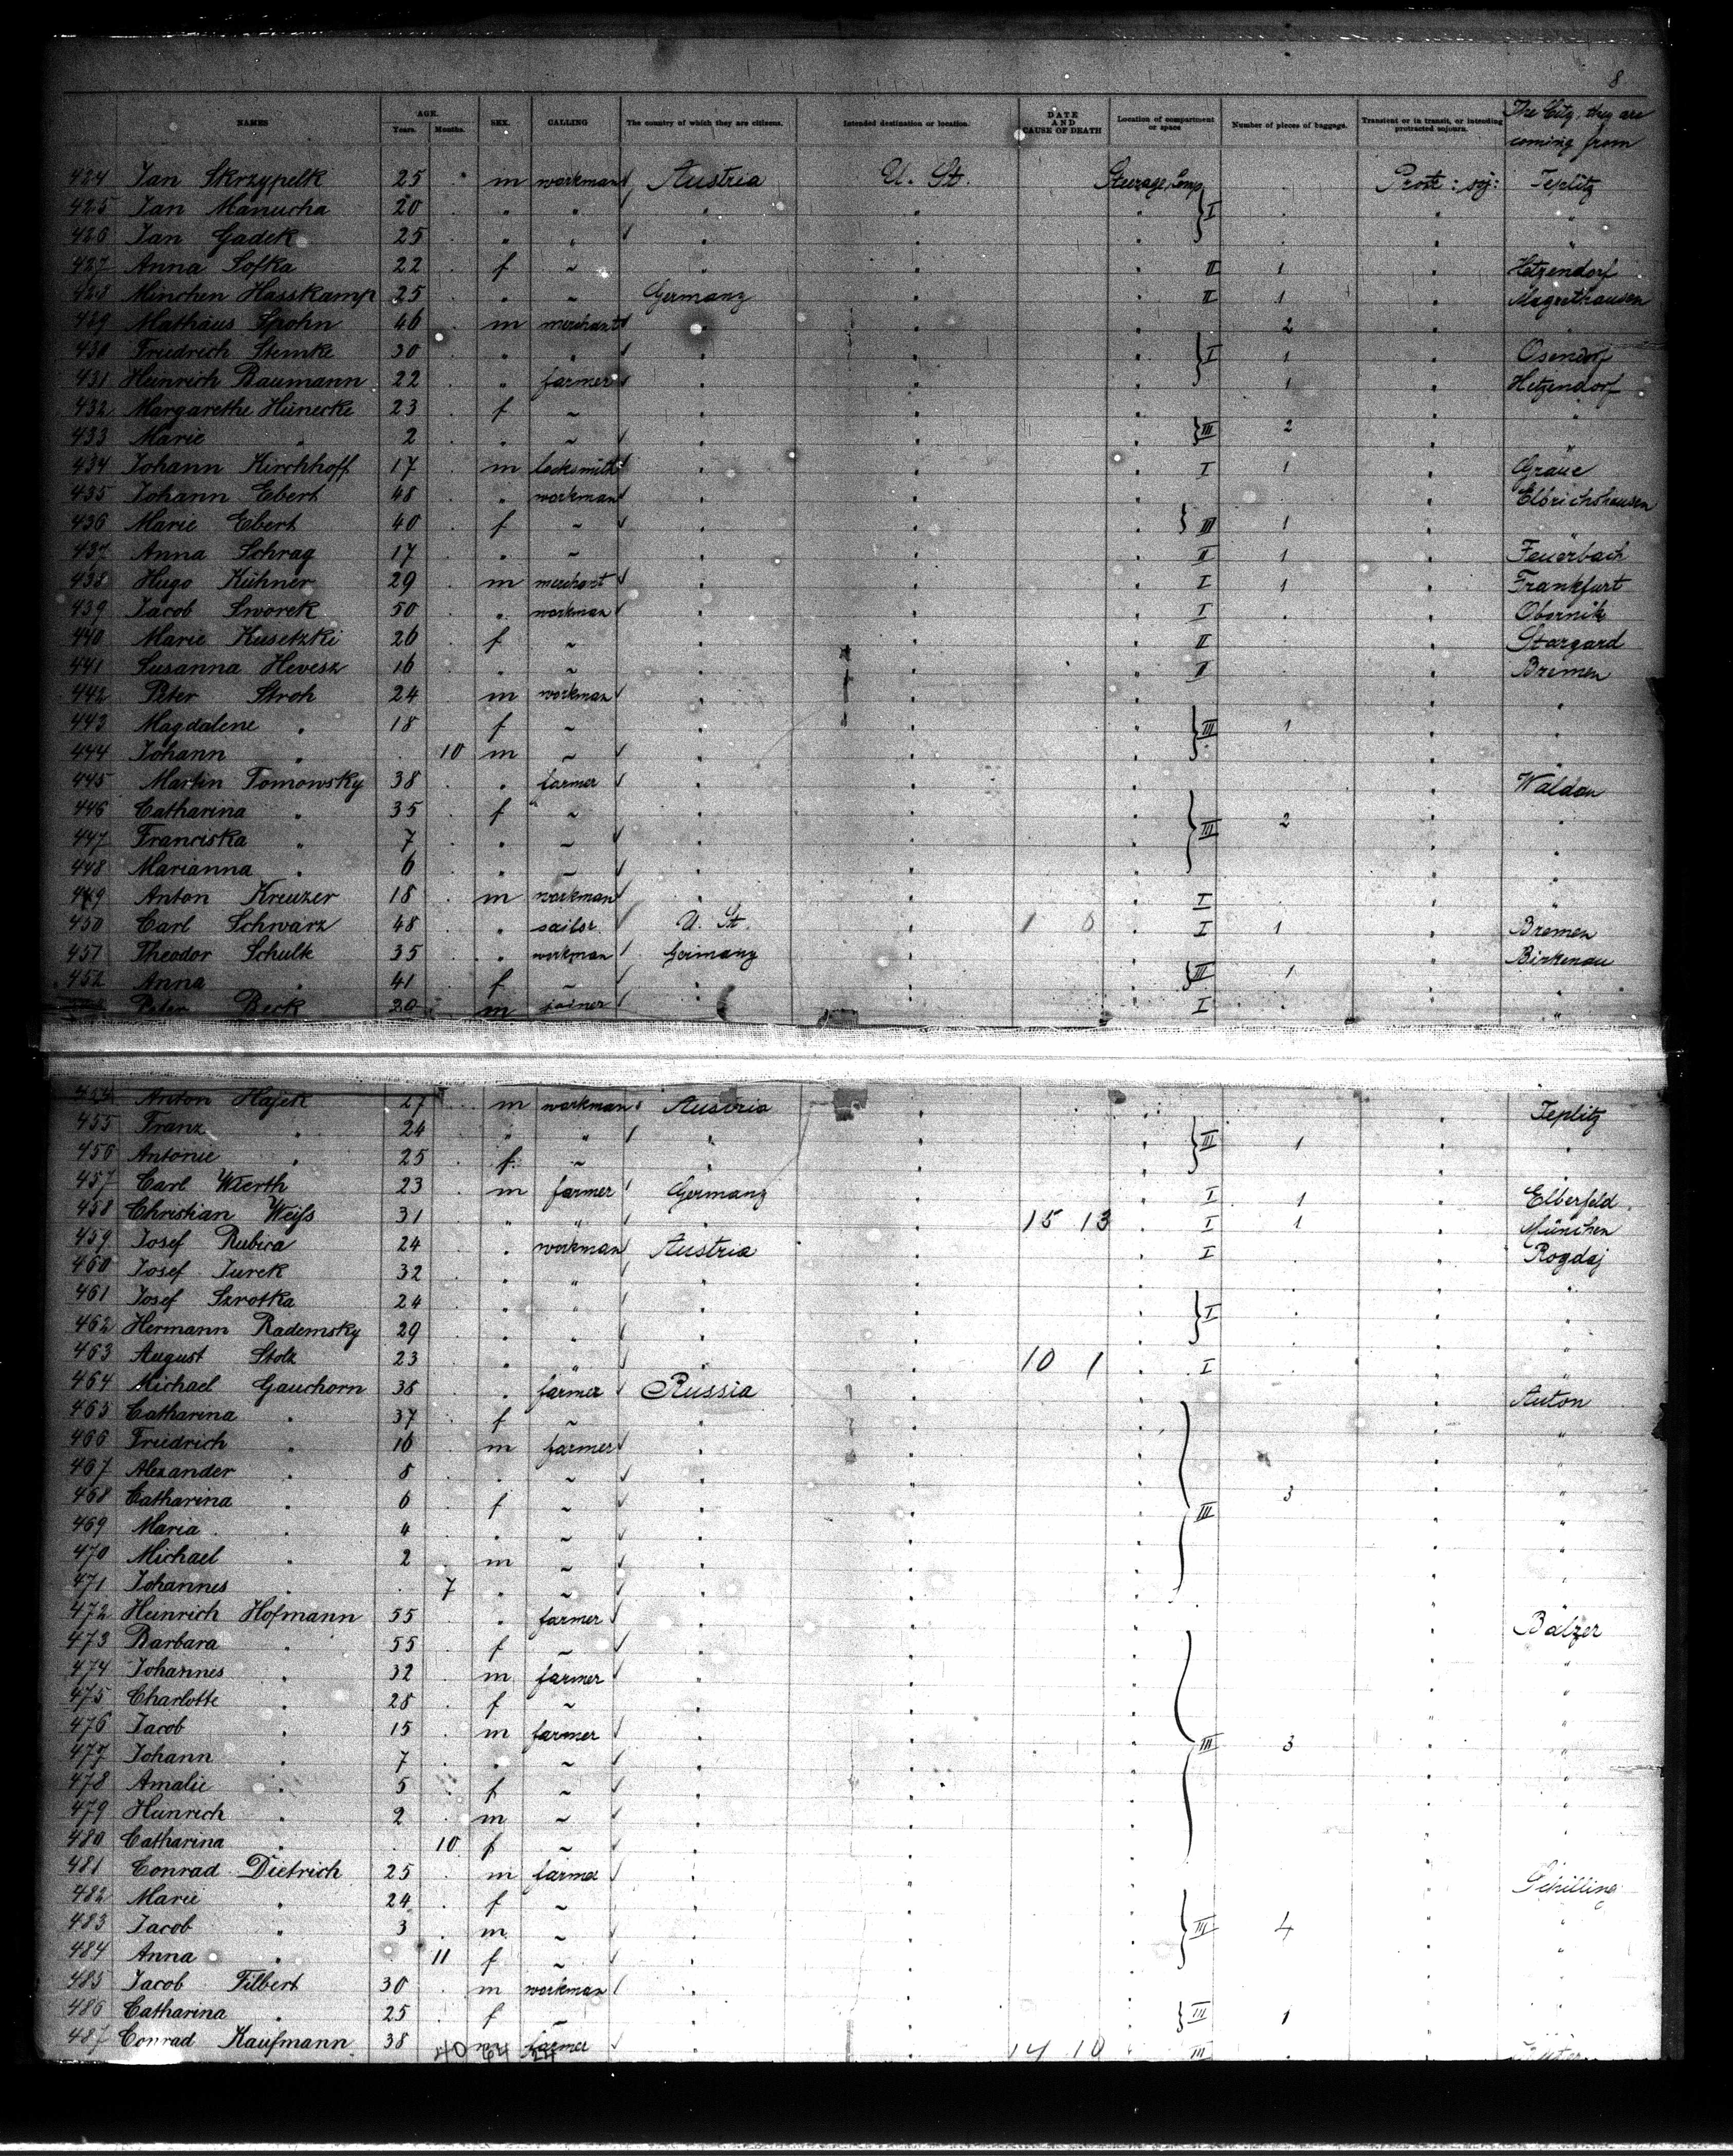 8
NAMES AGE. Years. Months. SEX. CALLING The country of which they are citizens. Intended destination or location. DATE AND CAUSE OF DEATH Location of compartment or space Number of pieces of baggage. Transient or in transit, or intending protracted sojourn. The City, they are coming from
424 Jan Skrzypelk 25 " m workman Austria U. St. Steerage, Comp Prot : soj: Teplitz
425 Jan Manucha 20 . " " " " } I . " "
426 Jan Gadek 25 . " " " " . " "
427 Anna Sofka 22 . f ~ " " II 1 " Hetzendorf
428 Minchen Hasskamp 25 . " ~ Germany " II 1 " Magrethausen
429 Mathäus Spohn 46 . m merchant " " 2 " "
430 Friedrich Stemke 30 . " " " " } I 1 " Osendorf
431 Heinrich Baumann 22 . " farmer " " 1 " Hetzendorf
432 Margarethe Hünecke 23 . f ~ " " " "
433 Marie " 2 . " ~ " " } III 2 " "
434 Johann Kirchhoff 17 . m locksmith " " I 1 " Gräue
435 Johann Ebert 48 . " workman " " " Elbrichshausen
436 Marie Ebert 40 . f ~ " " } III 1 " "
437 Anna Schrag 17 . " ~ " " II 1 " Feuerbach
438 Hugo Kühner 29 . m merchant " " I 1 " Frankfurt
439 Jacob Sworek 50 . " workman " " I . " Obornik
440 Marie Kusetzki 26 . f ~ " " II . " Stargard
441 Susanna Hevesz 16 . " ~ " " II . " Bremen
442 Peter Stroh 24 . m workman " " " "
443 Magdalene " 18 . f ~ " " } III 1 " "
444 Johann " . 10 m ~ " " " "
445 Martin Tomowsky 38 . " farmer " " " Waldau
446 Catharina " 35 . f ~ " " 2 " "
447 Franciska " 7 . " ~ " " } III " "
448 Marianna " 6 . " ~ " " " "
449 Anton Kreuzer 18 . m workman " " I . " "
450 Carl Schwarz 48 . " sailor U. St. " I 1 " Bremen
451 Theodor Schulk 35 . " workman Germany " " Birkenau
452 Anna " 41 . f ~ " " } III 1 " "
Peter Beck 20 . m joiner " " I . " "
454 Anton Hajek 27 . m workman Austria " " Teplitz
455 Franz " 24 . " " " " } III 1 " "
456 Antonie " 25 . f ~ " " " "
457 Carl Wierth 23 . m farmer Germany " I 1 " Elberfeld
458 Christian Weifs 31 . " " " " 15 13 I 1 " München
459 Josef Rubica 24 . " workman Austria " I . " Rogdaj
460 Josef Jurek 32 . " " " " " "
461 Josef Szrotka 24 . " " " " } I . " "
462 Hermann Rademsky 29 . " " " " " "
463 August Stolz 23 . " " " " 10 1 I . " "
464 Michael Gauchorn 38 . " farmer Russia " " Anton
465 Catharina " 37 . f ~ " " " "
466 Friedrich " 16 . m farmer " " " "
467 Alexander " 8 . " ~ " " " "
468 Catharina " 6 . f ~ " " 3 " "
469 Maria " 4 . " ~ " " } III " "
470 Michael " 2 . m ~ " " " "
471 Johannes " . 7 " ~ " " " "
472 Heinrich Hofmann 55 . " farmer " " " Balzer
473 Barbara " 55 . f ~ " " " "
474 Johannes " 32 . m farmer " " " "
475 Charlotte " 28 . f ~ " " " "
476 Jacob " 15 . m farmer " " " "
477 Johann " 7 . " ~ " " } III 3 " "
478 Amalie " 5 . f ~ " " " "
479 Heinrich " 2 . m ~ " " " "
480 Catharina " . 10 f ~ " " " "
481 Conrad Dietrich 25 . m farmer " " " Schilling
482 Marie " 24 . f ~ " " " "
483 Jacob " 3 . m ~ " " } III 4 " "
484 Anna " . 11 f ~ " " " "
485 Jacob Filbert 30 . m workman " " " "
486 Catharina " 25 . f ~ " " } III 1 " "
487 Conrad Kaufmann 38 40 64 farmer " " 14 10 III .